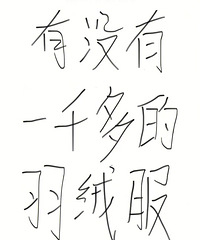 有没有
一千多的
羽绒服